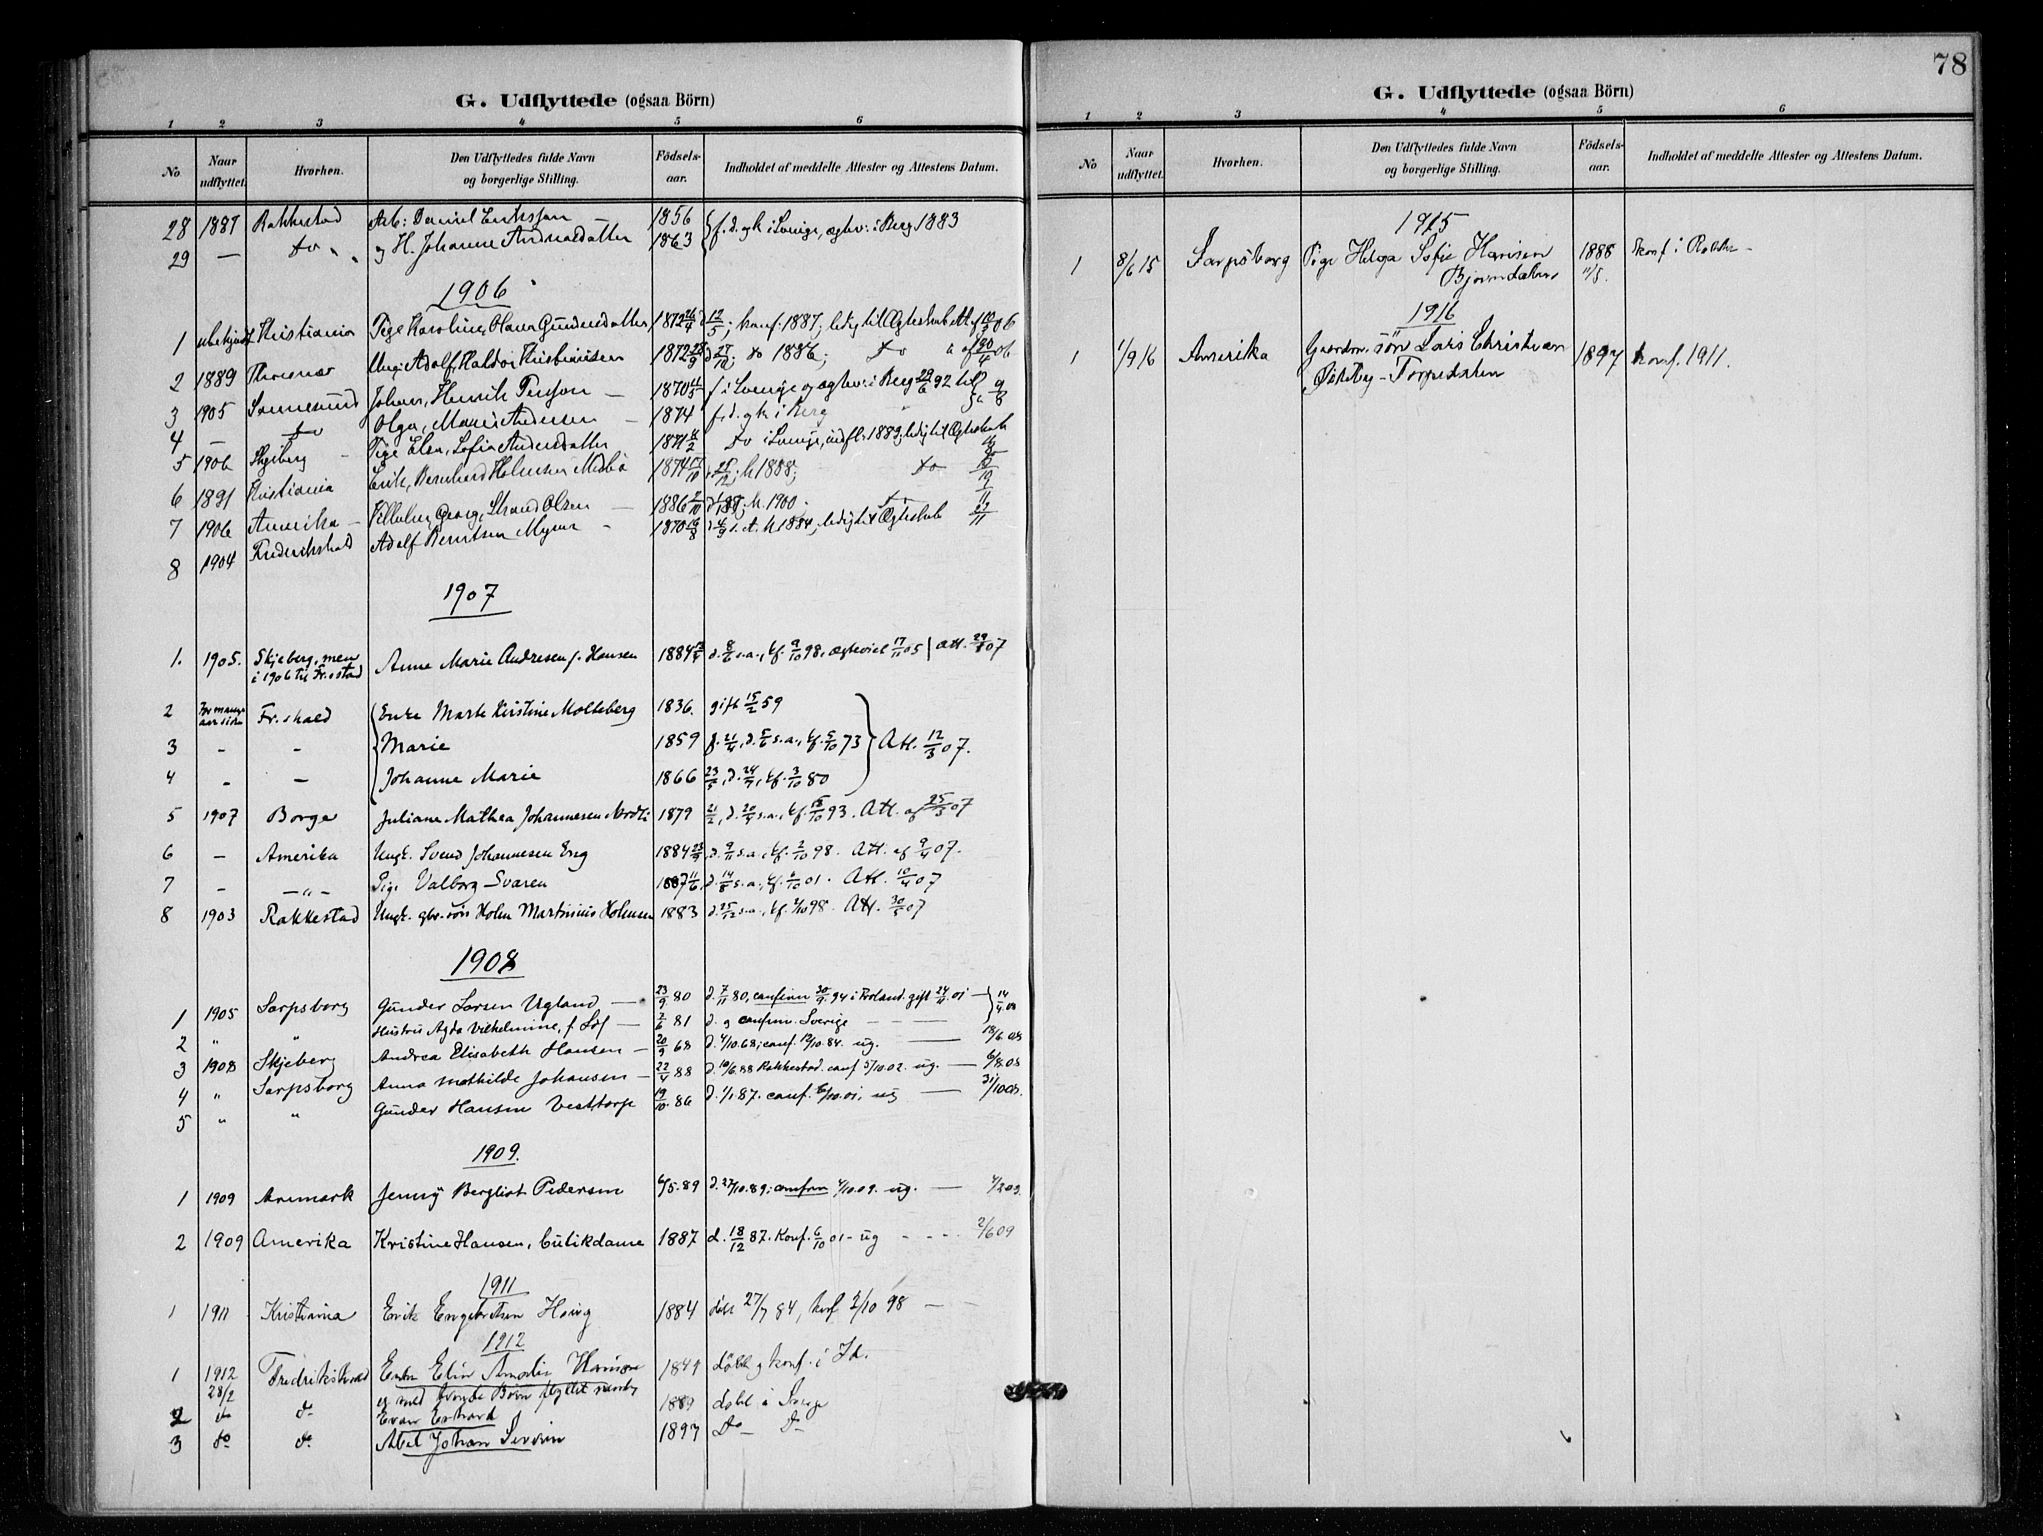 G. Udflyttede (ogsaa Börn)
1 2 3 4 5 6
No Naar udflyttet. Hvorhen. Den Udflyttedes fulde Navn og borgerlige Stilling. Födsels-aar. Indholdet af meddelte Attester og Attestens Datum.
28 1887 Rakkestad Arb: Daniel Eriksson 1856 f. d. og k i Sverige, ægtev: i Berg 1883
29 — do og H. Johanne Andreasdatter 1863
1906
1 ubekjendt Kristiania Pige Karoline, Olava Gundersdatter 1872 konf: 1887; ledig til Ægteskab
2 1889 Ungk: Adolf Haldor Kristiansen 1872 do 1886; do
3 1905 Sannesund Johan, Henrik Persson — 1870 f i Sverige og ægtev: i Berg 92
4 — do Olga, Marie Andersen — 1874 f. d. og k i Berg
5 1906 Skjeberg Pige Elsa, Sofie Andersdatter 1871 do i Sverige, indfl: 1889; ledig til Ægteskab
6 1891 Kristiania Erik, Bernhard Holmsen 1874 k 1888; do
7 1906 Amerika — Vilhelm, Georg, Strand Olsen — 1886 k. 1900
8 1904 Frederikshald Adolf Berntsen Myrer 1870 k 1884; ledig til Ægteskab
1907
1. 1905. Skjeberg, men
i 1906 til Fr.stad Anne Marie Andresen f. Hansen 1884 d. 8/6 s.a., kf. 9/10 98, ægteviet 17/11 05 Att. 07
2 For mange
aar siden Fr.shald Enke Marte Kirstine Molteberg 1836. gift 15/2 59
3 - - Marie 1859 f. 21/4, d. 5/6 s.a., kf. 5/10 73 Att. 12/3 07.
4 - - Johanne Marie 1866 kf. 3/10 80
5 1907 Borge Juliane Mathea Johannesen 1879 kf. 15/10 93. Att. af 25/3 07
6 — Amerika Ungk. Svend Johannesen Eng 1884 d. 9/11 s.a., kf. 2/10 98. Att. af 9/4 07.
7 - -"- Pige Valborg Svaren 1887 11/6, d. 14/8 s.a., kf. 6/10 01. Att. 10/4 07
8 1903 Rakkestad Ungk. gbr.søn Holm Martinius Holmsen 1883 d. 25/12 s.a., kf. 2/10 98. Att. 30/5 07
1908
1 1905 Sarpsborg Gunder Larsen Ugland — 23/9 80 d. 7/11 80, confirm 30/9. 94 i Froland. gift 24/11. 01 — 14/4.08
2 " " Hustru Agda Vilhelmine, f. Löf — 2/6 81 d. og confirm. Sverige
3 1908 Skjeberg Andrea Elisabeth Hansen — 20/9 68 d. 4/10.68; conf. 12/10.84. ug. — 18/6.08
4 " Sarpsborg Anna Mathilde Johansen — 22/4 88 d. 10/6.88 Rakkestad. conf 5/10.02. ug. — 6/8.08
5 " " Gunder Hansen Vesttorp 19/10. 86 d. 1/1.87. conf. 6/10.01. ug — 31/10 08.
1909.
1 1909 Aremark Jenny Bergliot Pedersen 6/5.89 d. 27/10.89; confirm 4/10.09. ug. —
2 1909 Amerika Kristine Hansen, Butikdame 1887 d. 18/12 87. Konf. 6/10 01 - ug - - - - 2/6 09
1911
1 1911 Kristiania Erik Engebretsen Houg 1884 døbt 27/7 84, konf 2/10 98 —
1912
1 1912
28/2 Fredrikshald Enke Elin Amalie Hansen 1849 døbt og konf. i Id.
og med
2 do do Evan Erhard 1889 døbt i Sverige
3 do do Abel Johan Severin 1893 Do Do
78
G. Udflyttede (ogsaa Börn)
1 2 3 4 5 6
No Naar udflyttet. Hvorhen. Den Udflyttedes fulde Navn og borgerlige Stilling. Födsels-aar. Indholdet af meddelte Attester og Attestens Datum.
1915
1 8/6 15 Sarpsborg Pige Helga Sofie Hansen 1888 konf i
Bjørndalen 11/5.
1916
1 1/9 16 Amerika Gaardm. søn Lars Christian 1897 konf. 1911.
Østeby - Torpedalen